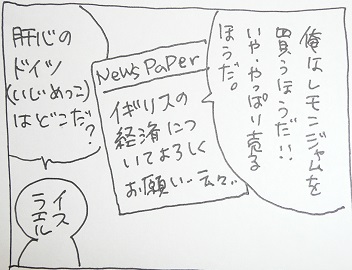 俺はレモンジャムを
買うほうだ!!
いや・やっぱり売る
ほうだ。
NEWS PAPER
イギリスの
経済につ
いてよろしく
お願い―云々..
肝心の
ドイツ
(いじめっこ)
はどこだ?
イス
ラエル